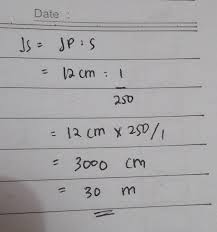 Date :
JS = JP : S
= 12 cm : 1/250
= 12 cm x 250/1
= 3000 cm
= 30 m